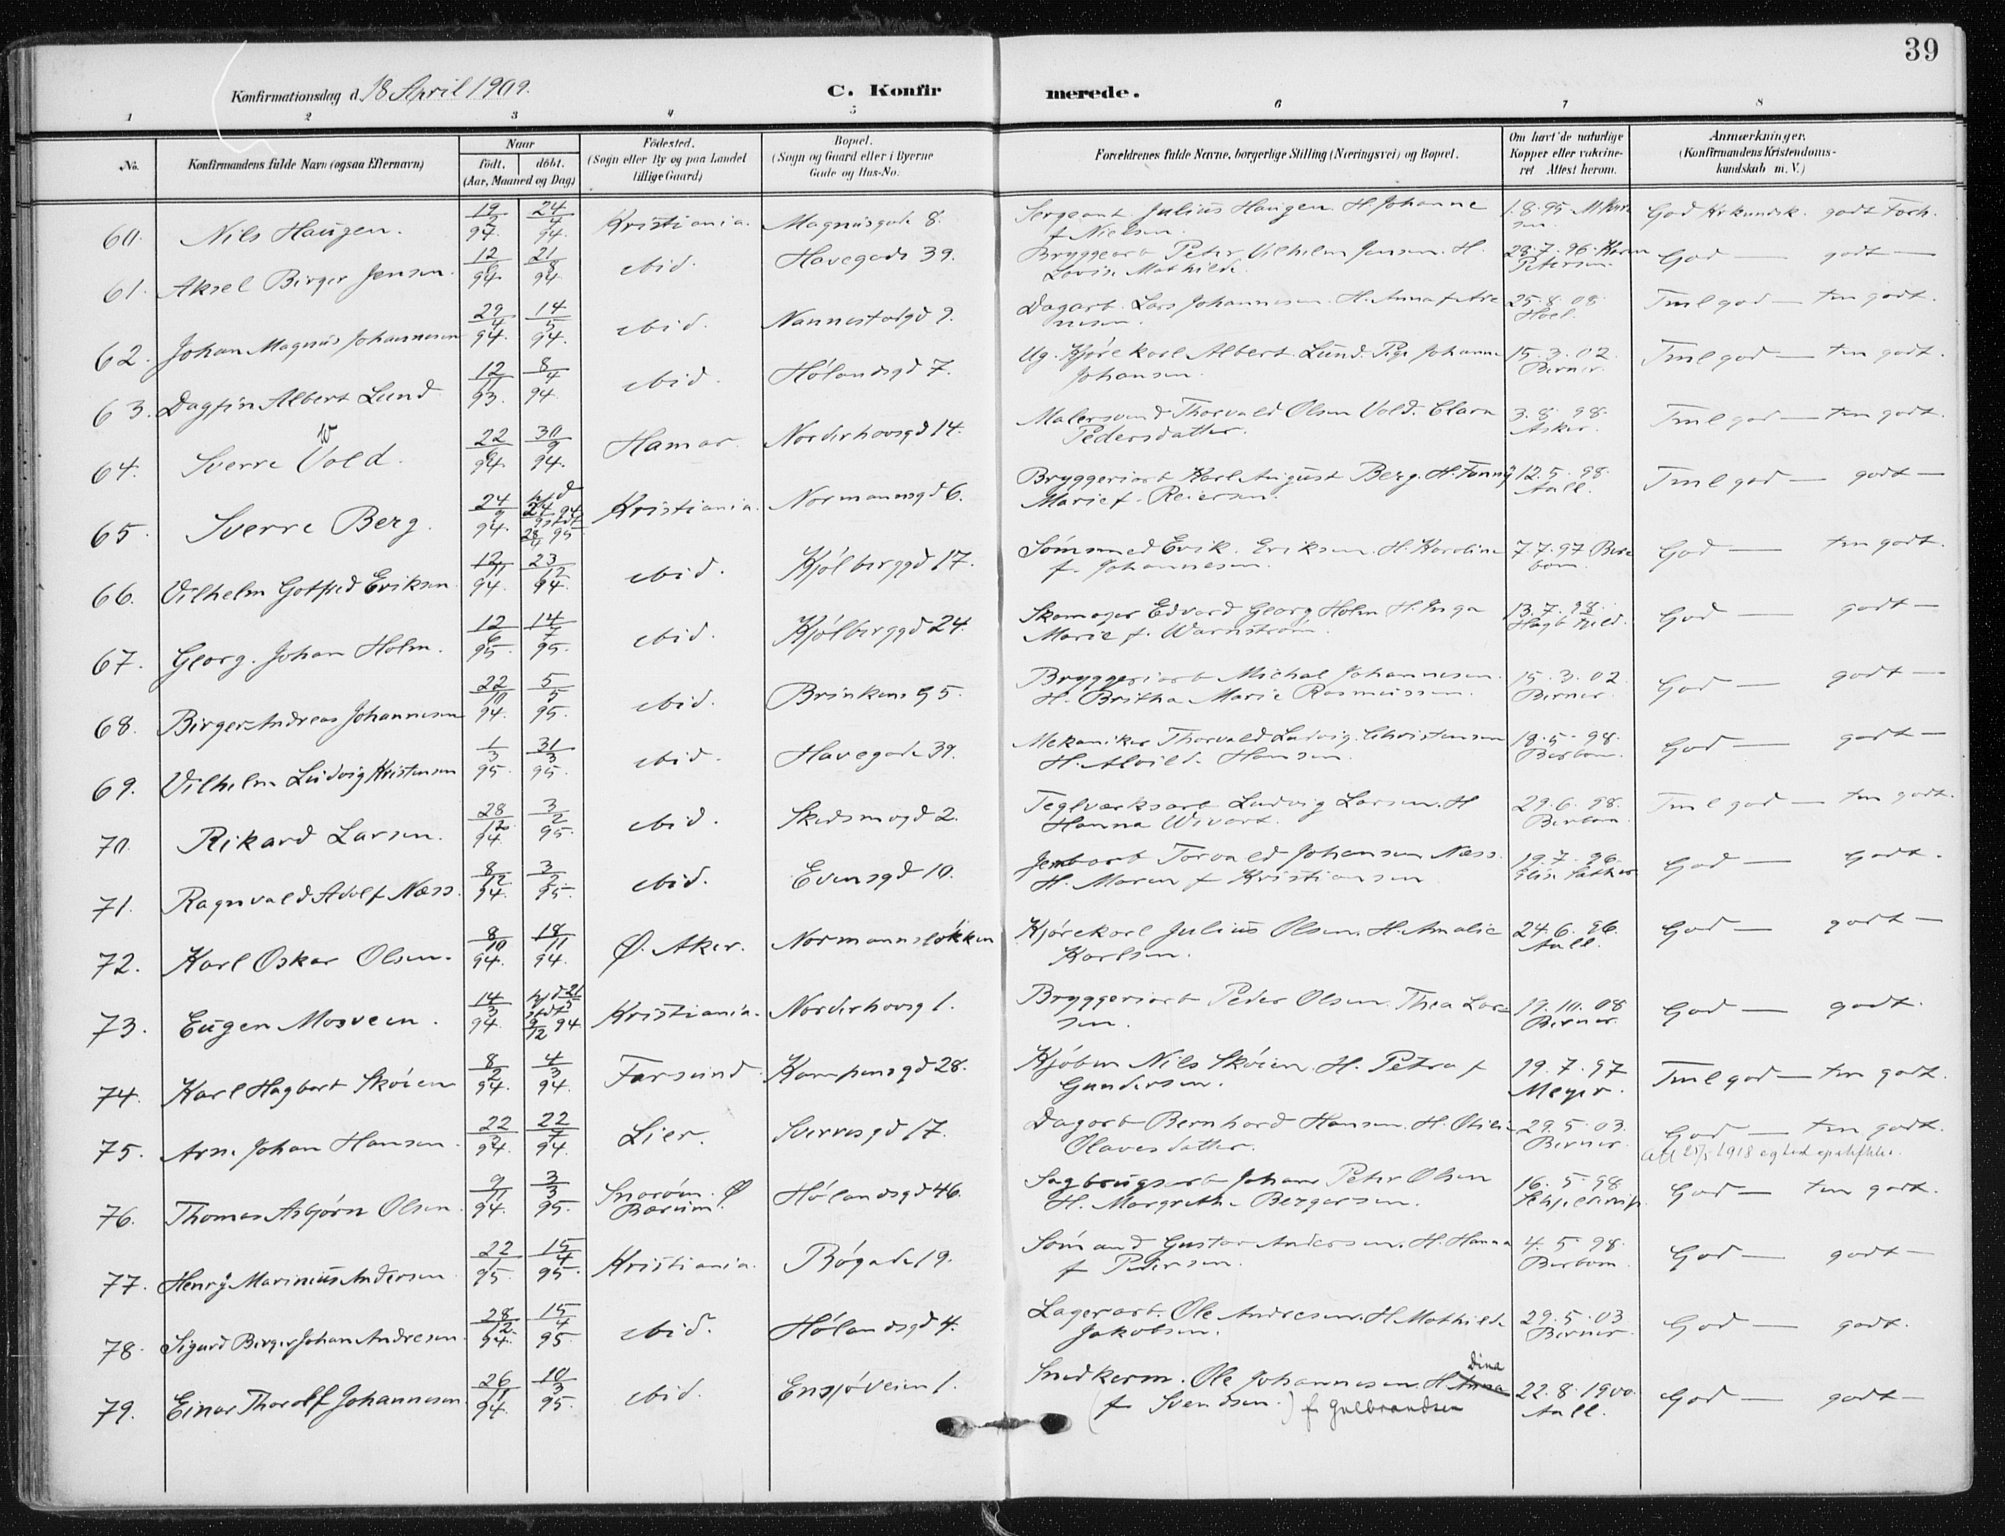 39
Konfirmationsdag d. 18 April 1909.
C. Konfirmerede.
1 2 3 4 5 6 7 8
No. Konfirmandens fulde Navn (ogsaa Efternavn) Naar födt. döbt. (Aar, Maaned og Dag) Födested. (Sogn eller By og paa Landet tillige Gaard) Bopæl. (Sogn og Gaard eller i Byerne Gade og Hus-No. Forældrenes fulde Navne, borgerlige Stilling (Næringsvei) og Bopæl. Om havt de naturlige Kopper eller vakcineret Attest herom. Anmærkninger. (Konfirmandens Kristendomskundskab m. V.)
60. Nils Haugen. 19/3 94. 24/4 94. Kristiania. Magnusgade 8. Sergeant Julius Haugen. H. Johanne f. Nielsen. 1.8.95 God Krkundsk. godt Forh.
61. Aksel Birger Jensen. 12/6 94. 21/8 94. ibid. Havegade 39. Bryggearb Peter Vilhelm Jensen. H. Lovise Mathilde. 28.7.96. Karen Petersen. God — godt —
62. Johan Magnus Johannesen 29/4 94. 14/5 94. ibid. Nannestadgd 9. Dagarb. Lars Johannesen. H. Anna f. Arnesen. 25.8.08. Hoel. Tml god — tm godt.
63. Dagfin Albert Lund 12/11 93. 8/4 94. ibid. Hölandsgd 7. Ug. Kjörekarl Albert Lund. Pige Johanne Johansen. 15.3.02. Berner. Tml god — tm godt.
64. Sverre Vold. W 22/6 94. 30/9 94. Hamar. Norderhovsgd 14. Malersvend Thorvald Olsen Vold. Clara Pedersdatter. 3.8.98. Asker. Tml god — tm godt.
65. Sverre Berg. 24/9 94. hjd 24/9 94 stdf 28/4 95. Kristiania. Normannsgd 6. Bryggeriarb Karl August Berg. H. Fanny Marie f. Reiersen. 12.5.98. Aall. Tml god — godt —
66. Vilhelm Gotfred Eriksen 12/11 94. 23/12 94. ibid. Kjölberggd 17. Sömsmed Erik Eriksen. H. Karoline f. Johannesen. 7.7.97 Bersbom. God — tm godt.
67. Georg Johan Holm. 12/6 95. 14/7 95. ibid. Kjölberggd 24. Skomager Edvard Georg Holm H. Inga Marie f. Warnström. 13.7.98. God — godt —
68. Birger Andreas Johannesen 22/10 94. 5/5 95. ibid. Brinkens g 5. Bryggeriarb Michal Johannesen. H. Britha Marie Rasmussen. 15.3.02. Berner. God — godt —
69. Vilhelm Ludvig Kristensen 1/3 95. 31/3 95. ibid. Havegade 39. Mekaniker Thorvald Ludvig Christensen H. Alvilde Hansen. 18.5.98. Berbom. God — godt —
70. Rikard Larsen. 28/12 94. 3/2 95. ibid. Skedsmogd 2. Teglværksarb Ludvig Larsen. H Hanna Wivart. 29.6.98. Berbom. Tml god — tm godt.
71. Ragnvald Adolf Næss. 8/12 94. 3/2 95. ibid. Evensgd 10. Jernbarb Torvald Johansen Næss. H. Maren f. Kristiansen 19.7.96. God — godt.
72. Karl Oskar Olsen. 8/10 94. 18/11 94. Ø. Aker. Normannslökken Kjörekarl Julius Olsen. H. Amalie Karlsen. 24.6.96. Aall. God — godt —
73. Eugen Mosveen. 14/3 94. hjd 21/3 stdf 9/12 94 Kristiania. Norderhovsg 1. Bryggeriarb Peder Olsen. Thea Larsen. 19.10.08 Berner. God — godt.
74. Karl Hagbart Sköien 8/2 94. 4/3 94. Farsund. Kampensgd 28. Kjöbm Nils Sköien. H. Petra f Gundersen. 19.7.97 Meyer. Tml god — tm godt.
75. Arne Johan Hansen. 22/3 94. 22/7 94. Lier. Sverresgd 17. Dagarb Bernhard Hansen. H. Otilie Olavesdatter. 29.5.03. Berner. God — tm godt.
76. Thomas Asbjörn Olsen. 9/11 94. 3/3 95. Snaröen. Ø Bærum. Hölandsgd 46. Sagbrugsarb Johan Peter Olsen H. Margrethe Bergersen. 16.5.98 Schjelderup. God — tm godt.
77. Henry Marinius Andersen. 22/1 95. 15/4 95. Kristiania. Bögade 19. Sömand Gustav Andersen. H. Hanna f Pedersen. 4.5.98. Berbom. God — godt —
78. Sigurd Birger Johan Andresen. 28/12 94. 15/4 95 ibid. Hölandsgd 4. Lagerarb. Ole Andresen. H. Mathilde Jakobsen. 29.5.03. Berner. God — godt.
79. Einar Thorolf Johannesen 26/11 94. 10/3 95. ibid. Ensjöveien 1. Snedkerm. Ole Johannesen. H. Anna Dina (f. Svendsen.) f Gulbrandsen 22.8.1900. Aall. God — godt —